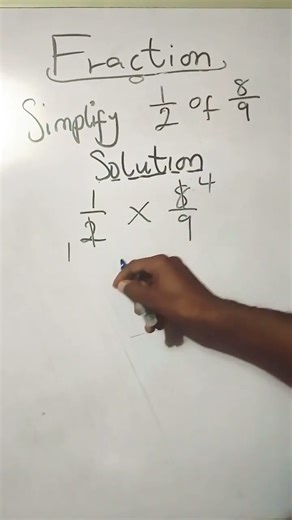 Fraction
Simplify 1/2 of 8/9
Solution
1/2 × 8/9 4
1